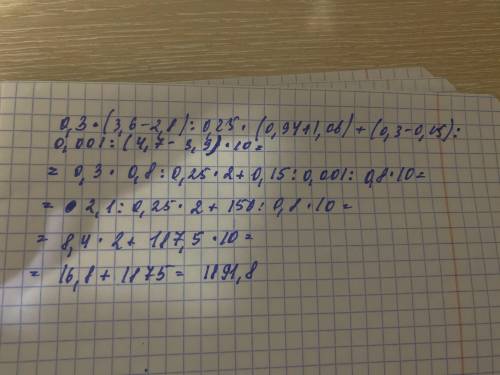 0,3·(3,6-2,8):0,25·(0,94+1,06)+(0,3-0,15):
0,001:(4,7-3,9)·10=
= 0,3·0,8:0,25·2+0,15:0,001:0,8·10=
= 2,1:0,25·2+150:0,8·10=
= 8,4·2+187,5·10=
= 16,8+1875= 1891,8